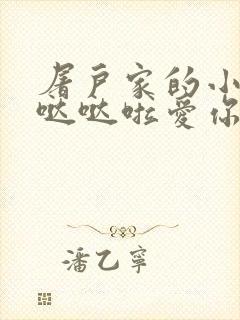 屠户家的小
哒哒啦爱你
潘乙宁